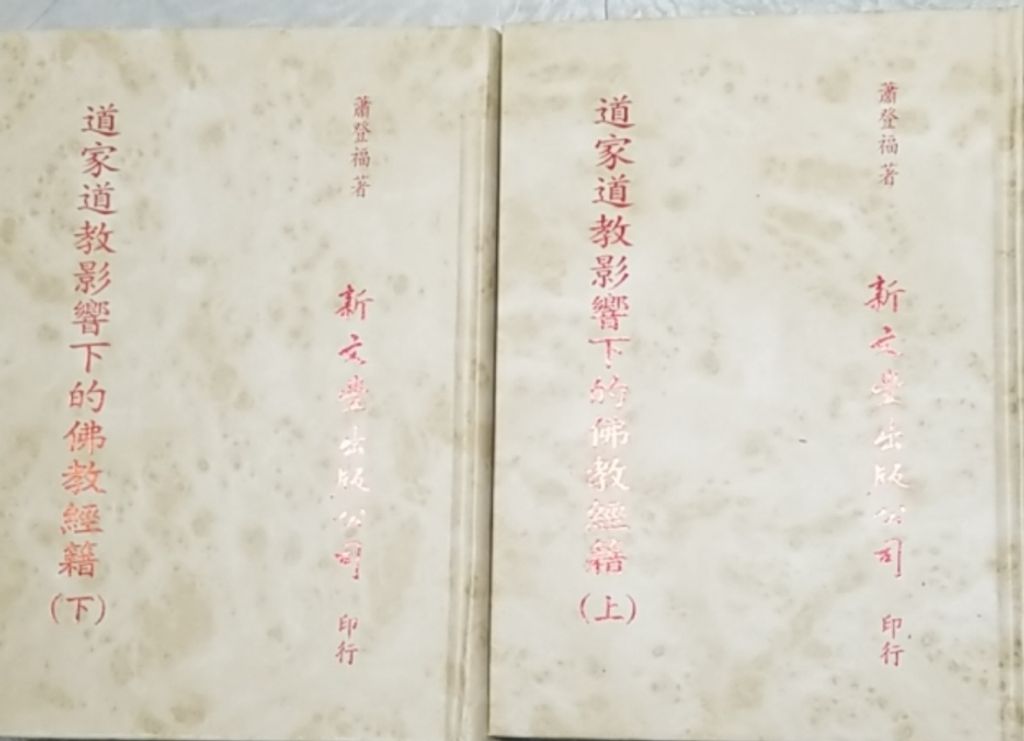 蕭登福著
新文豐出版公司 印行
道家道教影響下的佛教經籍
(上)
蕭登福著
新文豐出版公司 印行
道家道教影響下的佛教經籍
(下)